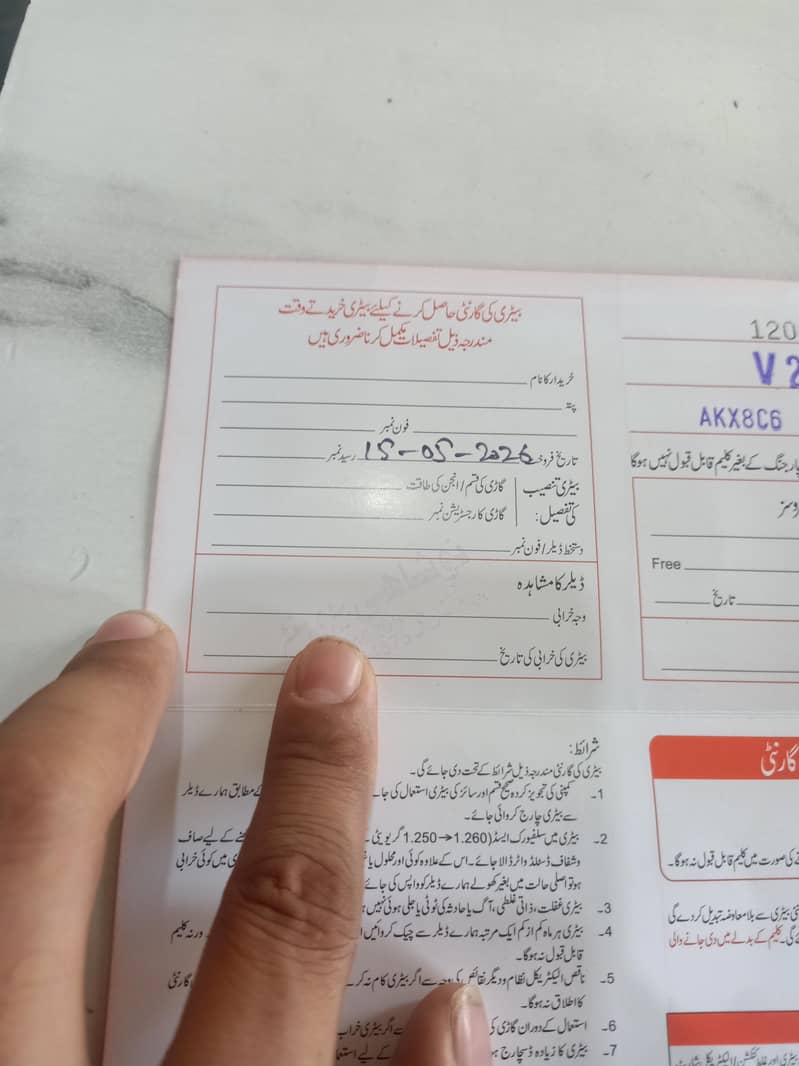 بیٹری کی گارنٹی حاصل کرنے کیلئے بیٹری خریدتے وقت
مندرجہ ذیل تفصیلات مکمل کرنا ضروری ہیں
خریدار کا نام
پتہ
فون نمبر
تاریخ فروخت 15-05-2026 رسید نمبر
بیٹری تنصیب گاڑی کی قسم/انجن کی طاقت
کی تفصیل: گاڑی کا رجسٹریشن نمبر
دستخط ڈیلر/فون نمبر
ڈیلر کا مشاہدہ
وجہ خرابی
بیٹری کی خرابی کی تاریخ
120
V 2
AKX8C6
چارجنگ کے بغیر کلیم قابل قبول نہیں ہوگا
Free
تاریخ
شرائط:
بیٹری کی گارنٹی مندرجہ ذیل شرائط کے تحت دی جائے گی۔
1۔ کمپنی کی تجویز کردہ صحیح قسم اور سائز کی بیٹری استعمال کی جا کے مطابق ہمارے ڈیلر
سے بیٹری چارج کروائی جائے۔
2۔ بیٹری میں سلفیورک ایسڈ (1.260→1.250 گریویٹی کے لیے صاف
وشفاف ڈسٹلڈ واٹر ڈالا جائے۔ اس کے علاوہ کوئی اور محلول یا میں کوئی خرابی
ہو تو اصلی حالت میں بغیر کھولے ہمارے ڈیلر کو واپس کی جائے
3۔ بیٹری غفلت، ذاتی غلطی، آگ یا حادثہ کی ٹوٹی یا جلی ہوئی نہیں
4۔ بیٹری ہر ماہ کم از کم ایک مرتبہ ہمارے ڈیلر سے چیک کروائیں ورنہ کلیم
قابل قبول نہ ہوگا۔
5۔ ناقص الیکٹریکل نظام و دیگر نقائص کی وجہ سے اگر بیٹری کام نہ کر گارنٹی
کا اطلاق نہ ہوگا۔
6۔ استعمال کے دوران گاڑی کی سے اگر بیٹری خراب
7۔ بیٹری کا زیادہ ڈسچارج کے لیے استعما
گارنٹی
کی صورت میں کلیم قابل قبول نہ ہوگا۔
بیٹری سے بلا معاوضہ تبدیل کر دے گی
گی۔ کلیم کے بدلے میں دی جانے والی